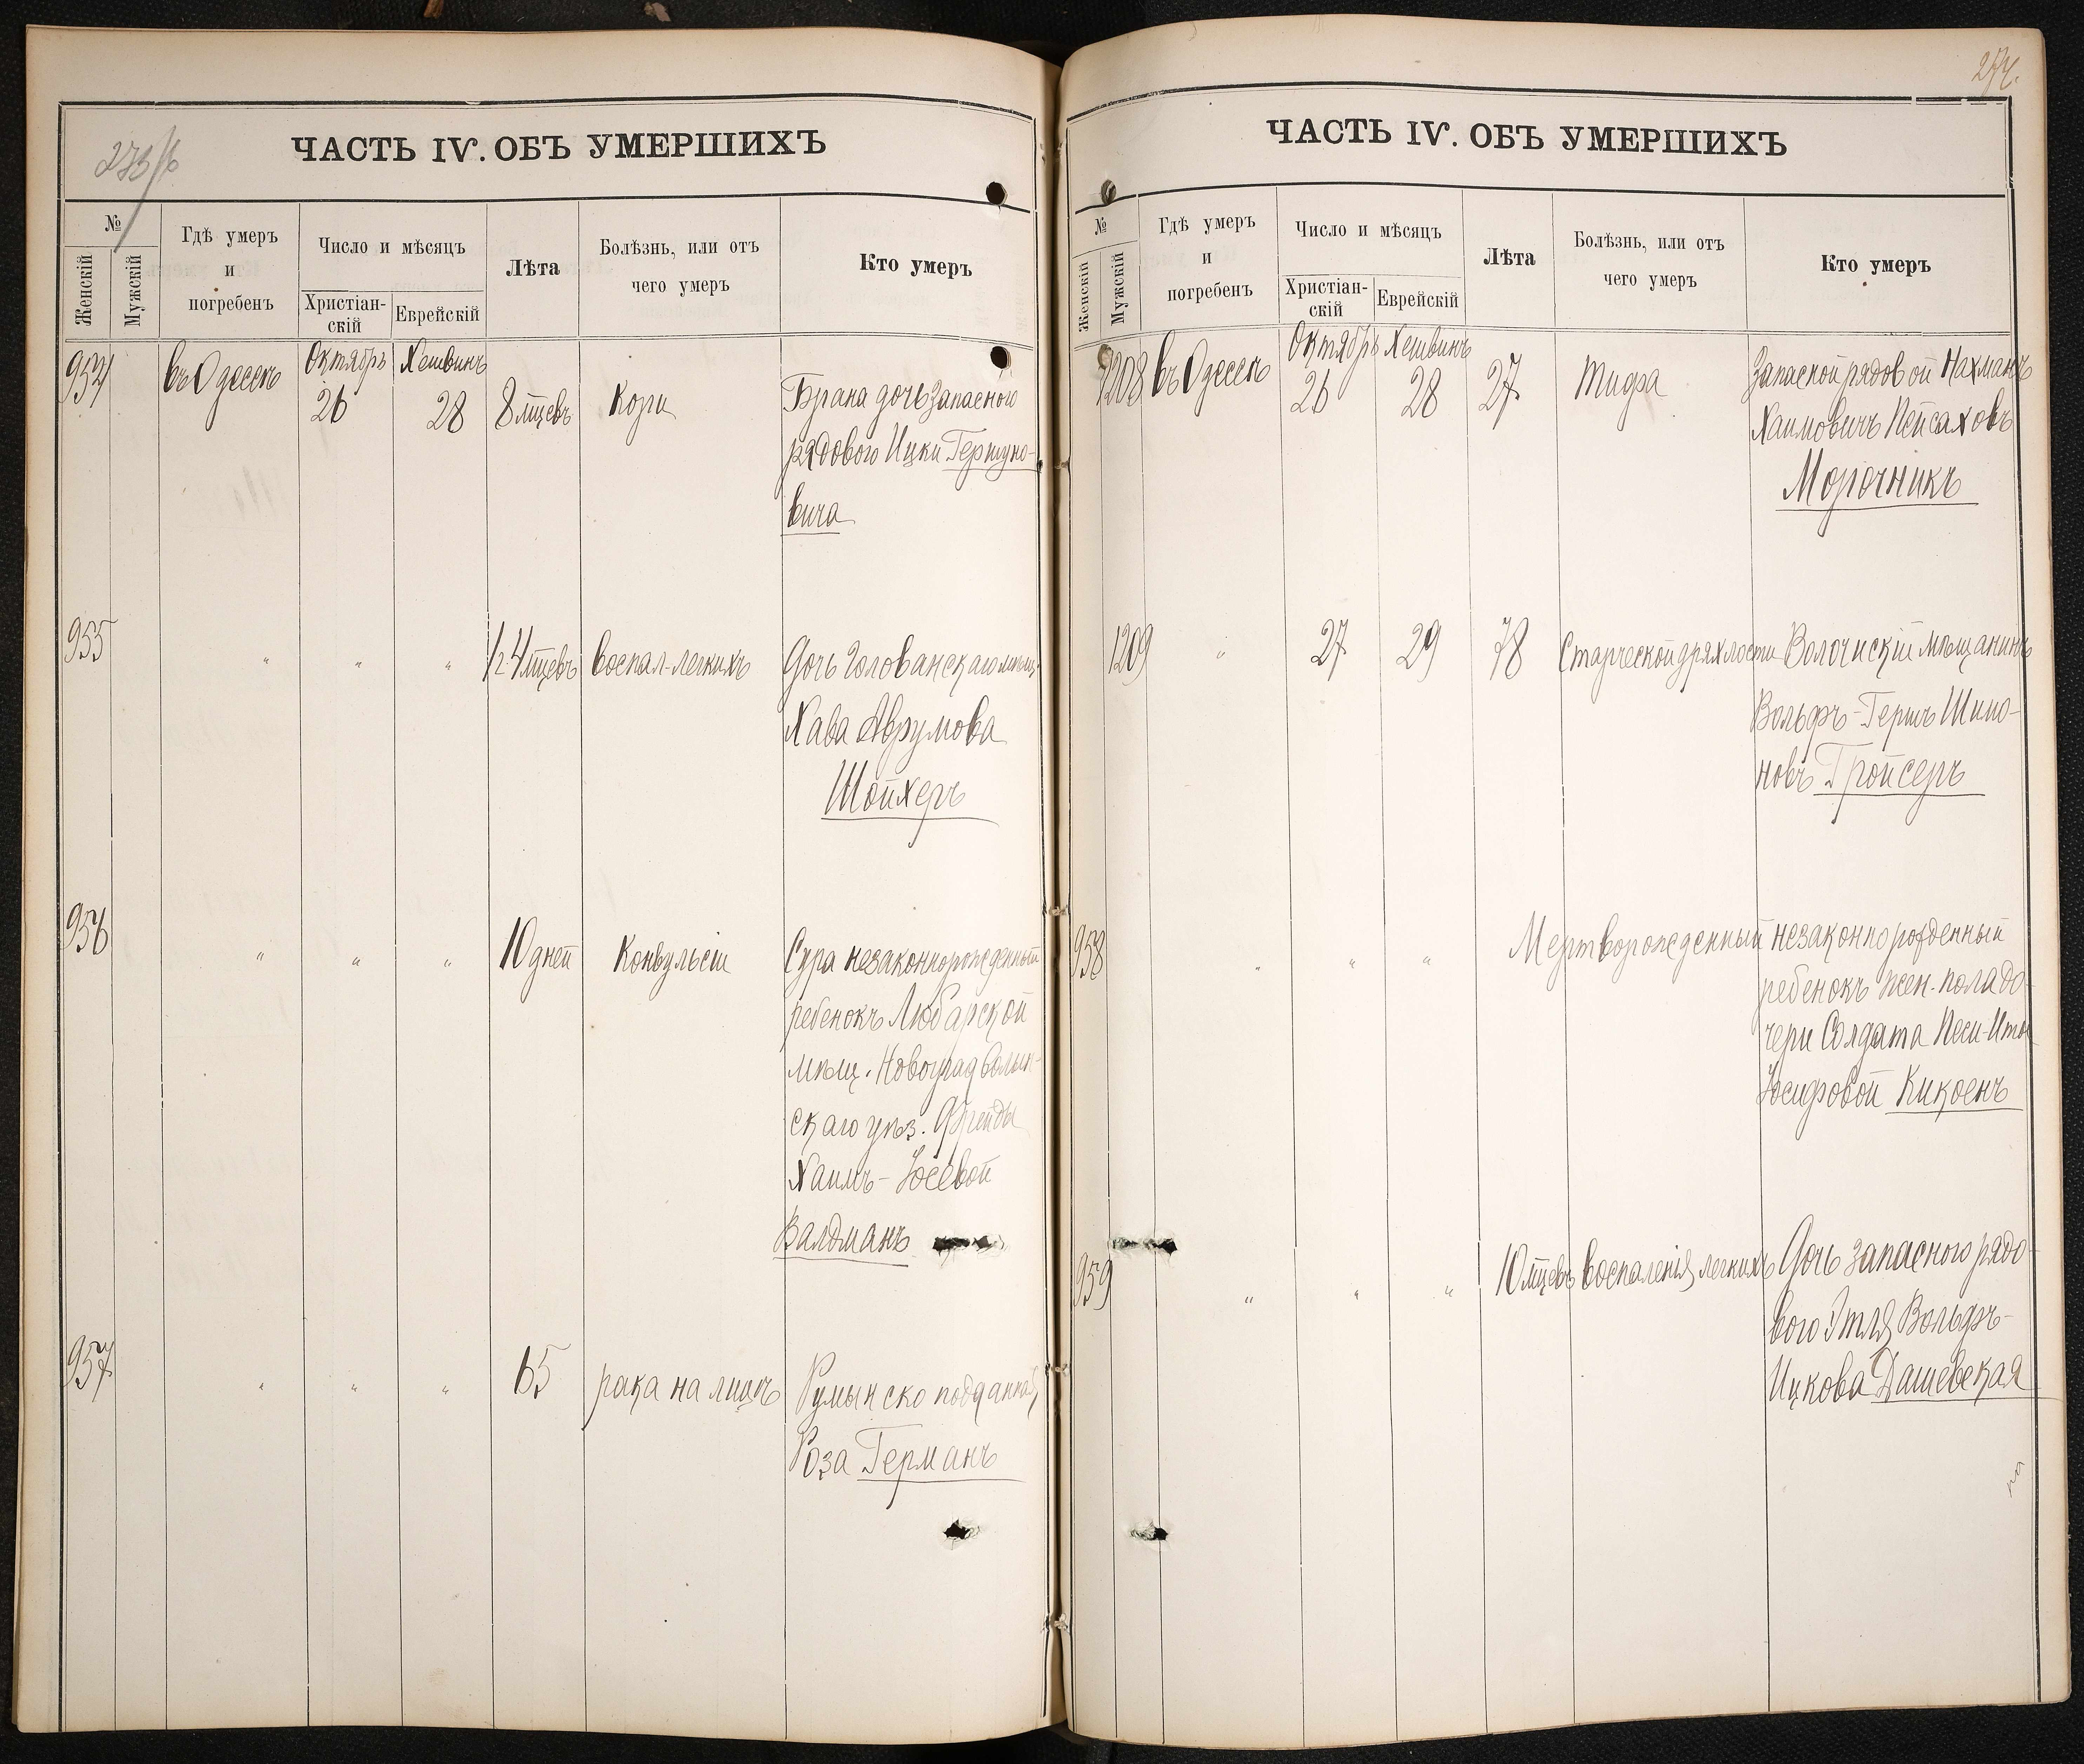 273/б
ЧАСТЬ IV. ОБЪ УМЕРШИХЪ
№
Женскій
Мужскій
Гдѣ умеръ
и
погребенъ
Число и мѣсяцъ
Христіан-
скій
Еврейскій
Лѣта
Болѣзнь, или отъ
чего умеръ
Кто умеръ
954 въ Одессѣ Октябрь 26 Хешвинъ 28 8 мцевъ Кори Брана дочь запасного
рядового Ицки Гершуно-
вича
955 " " " 1 г. 4 мцевъ воспал. легкихъ Дочь Голованскаго мѣщ.
Хава Аврумова
Шойхеръ
956 " " " 10 дней Конвульсіи Сура незаконнорожденный
ребенокъ Любарской
мѣщ. Новоград Волын-
скаго уѣз. Фрейды
Хаимъ-Іосевой
Валдманъ
957 " " " 65 рака на лицѣ Румынско подданная
Роза Германъ
274.
ЧАСТЬ IV. ОБЪ УМЕРШИХЪ
№
Женскій
Мужскій
Гдѣ умеръ
и
погребенъ
Число и мѣсяцъ
Христіан-
скій
Еврейскій
Лѣта
Болѣзнь, или отъ
чего умеръ
Кто умеръ
1208 въ Одессѣ Октябрь 26 Хешвинъ 28 27 Тифа Запасной рядовой Нахманъ
Хаимовичъ Пейсаховъ
Морочникъ
1209 " 27 29 78 Старческой дряхлости Волочискій мѣщанинъ
Вольфъ-Гершъ Шимо-
новъ Гройсеръ
958 " " " Мертворожденный незаконно рожденный
ребенокъ жен. пола до-
чери Солдата Песи-Иты
Іосифовой Кикоенъ
959 " " " 10 мцевъ воспаленія легкихъ Дочь запасного рядо-
вого Этля Вольфъ-
Ицкова Дашевская